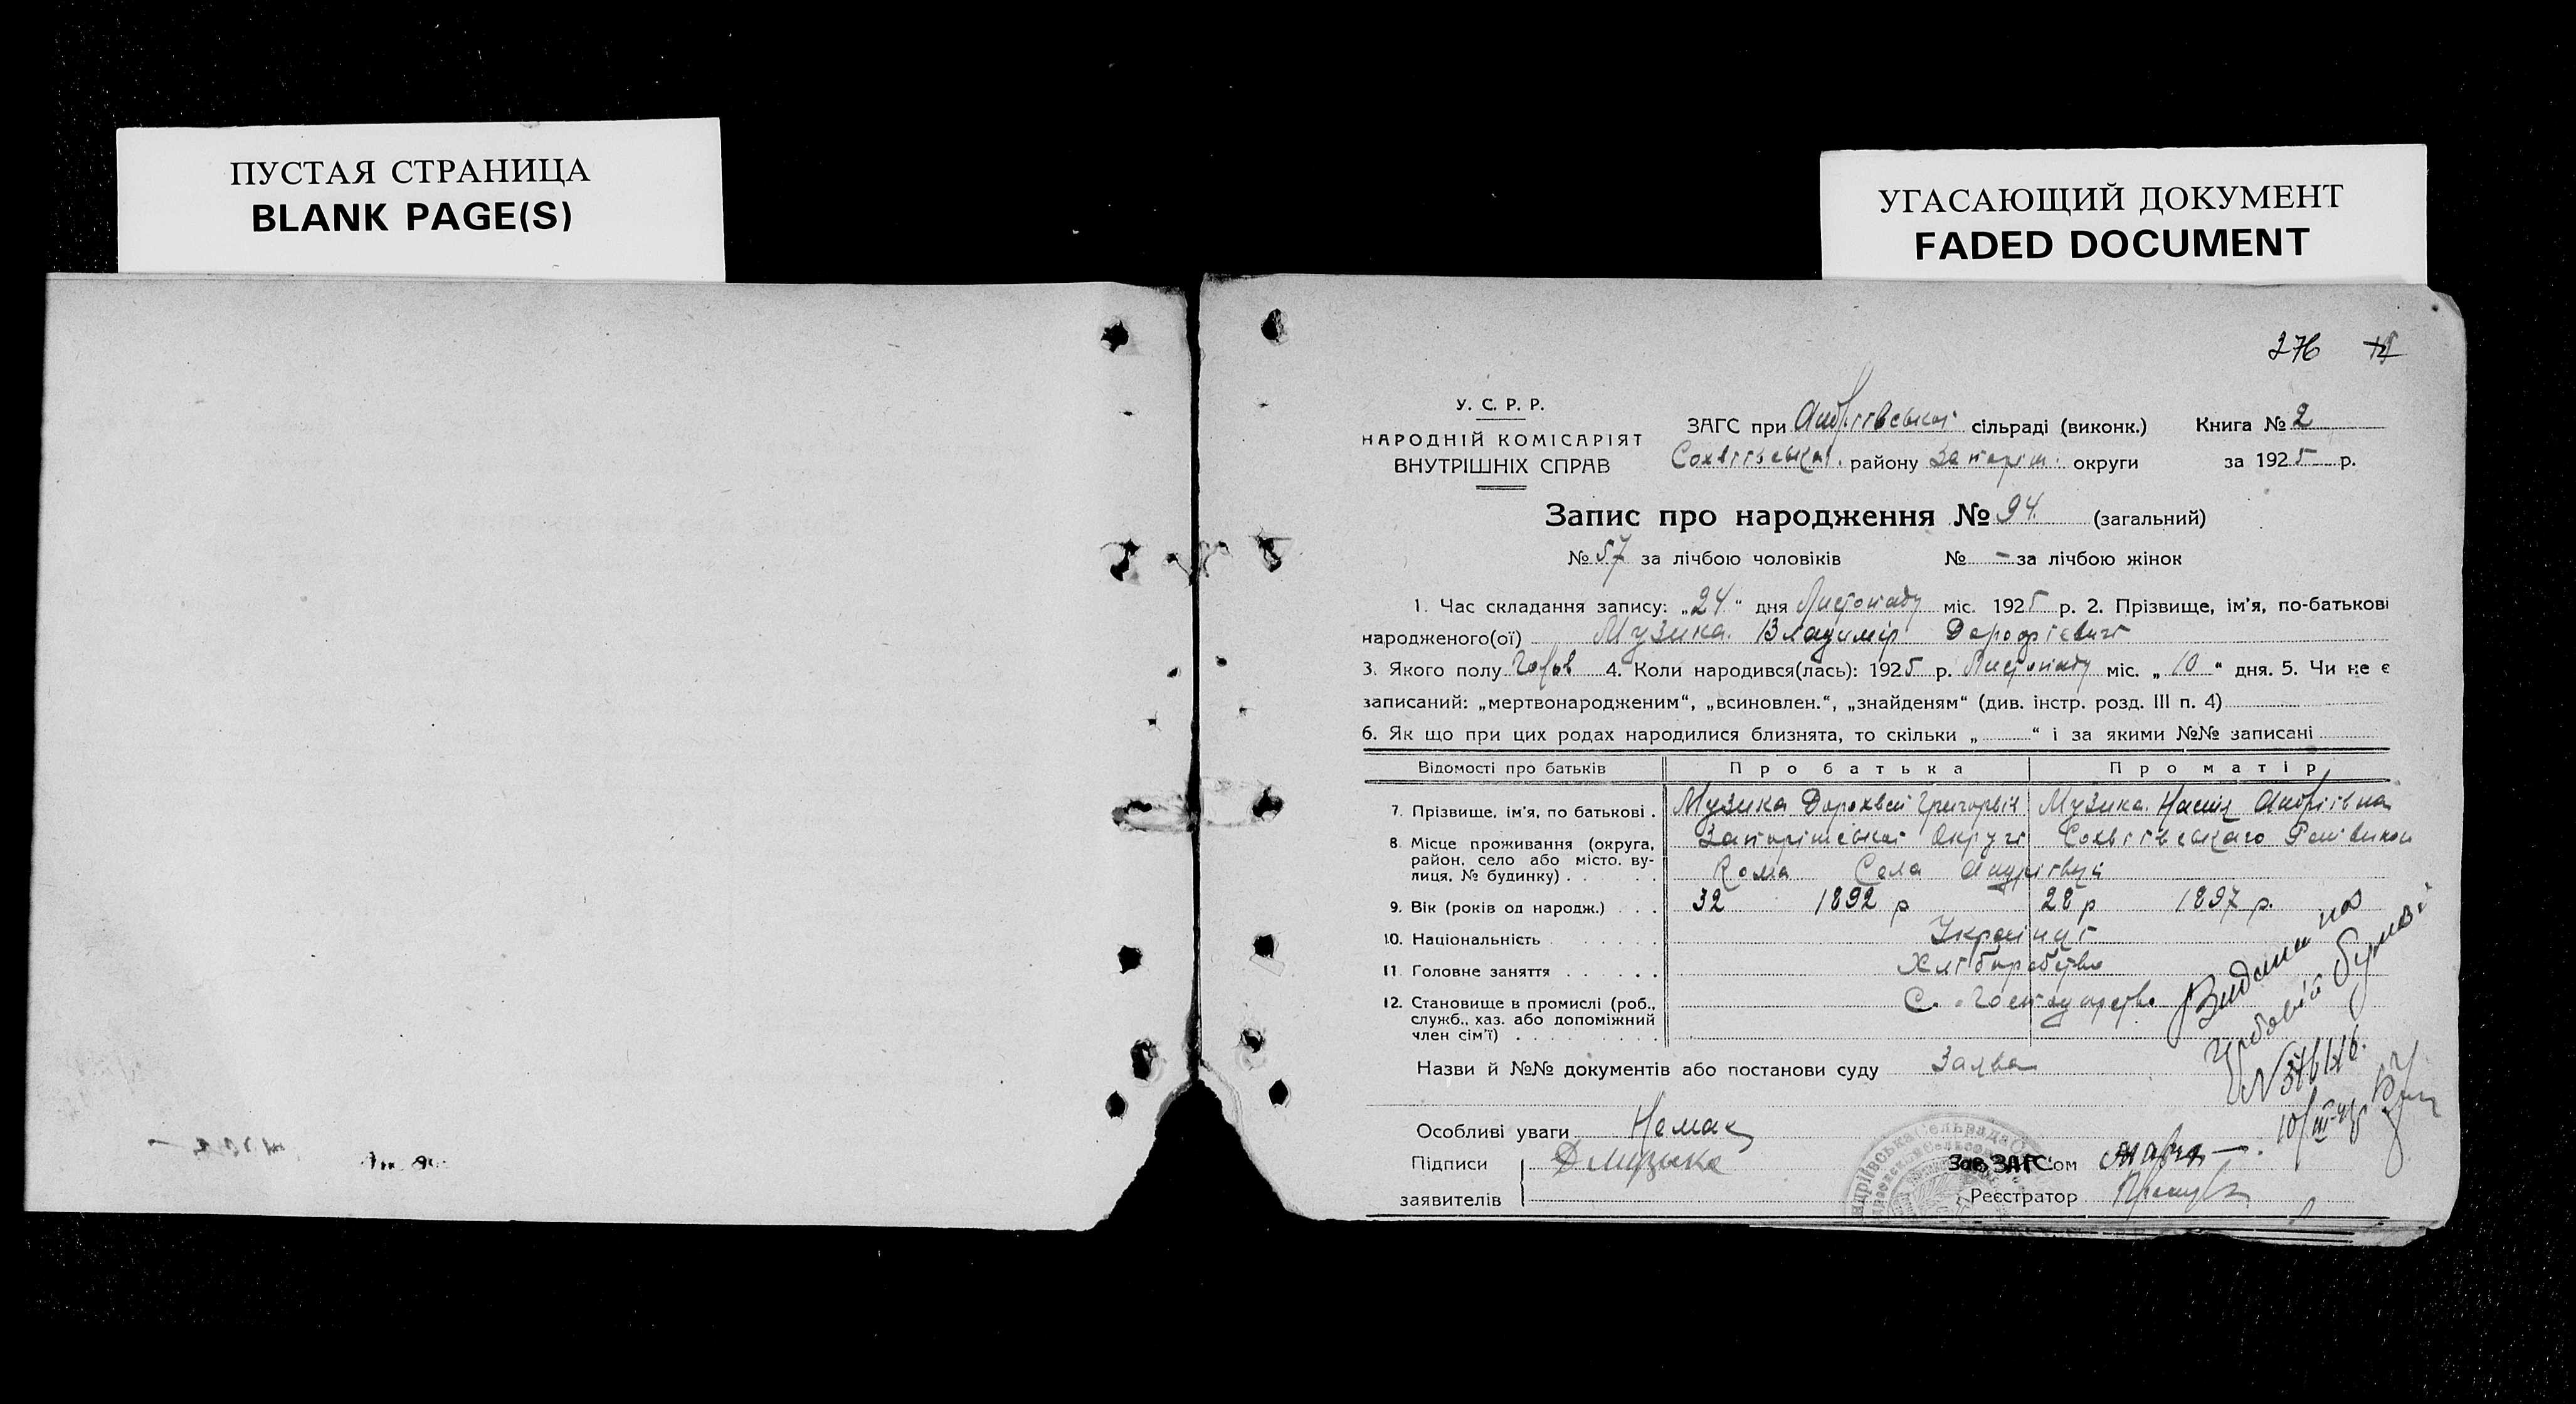 ПУСТАЯ СТРАНИЦА
BLANK PAGE(S)
УГАСАЮЩИЙ ДОКУМЕНТ
FADED DOCUMENT
276
У. С. Р. Р.
НАРОДНІЙ КОМІСАРІЯТ
ВНУТРІШНІХ СПРАВ
ЗАГС при Андріївській сільраді (виконк.) Книга № 2
району Запоріж. округи за 1925 р.
Запис про народження № 94 (загальний)
№ 57 за лічбою чоловіків № – за лічбою жінок
1. Час складання запису: „24“ дня Листопаду міс. 1925 р. 2. Прізвище, ім'я, по-батькові
народженого(ої) Музика Владимір Дорофієвич
3. Якого полу Чолов 4. Коли народився(лась): 1925 р. Листопаду міс. „10“ дня. 5. Чи не є
записаний: „мертвонародженим“, „всиновлен.“, „знайденям“ (див. інстр. розд. III п. 4)
6. Як що при цих родах народилися близнята, то скільки „ “ і за якими №№ записані
Відомості про батьків Про батька Про матір
7. Прізвище, ім'я, по батькові . Музика Дорохвей Григорвіч Музика Настя Андріівна
8. Місце проживання (округа, район, село або місто, вулиця, № будинку) . Села
9. Вік (років од народж.) . . . 32 1892 р 28 р 1897 р.
10. Національність . . . . . . Україн
11. Головне заняття . . . . . Хліборобство
12. Становище в промислі (роб., служб., хаз. або допоміжний член сім'ї) . . . . . С. Господарство
Назви й №№ документів або постанови суду Заява
Особливі уваги Немає
Підписи Д Музыка
заявителів
Зав. ЗАГС'ом
Реєстратор